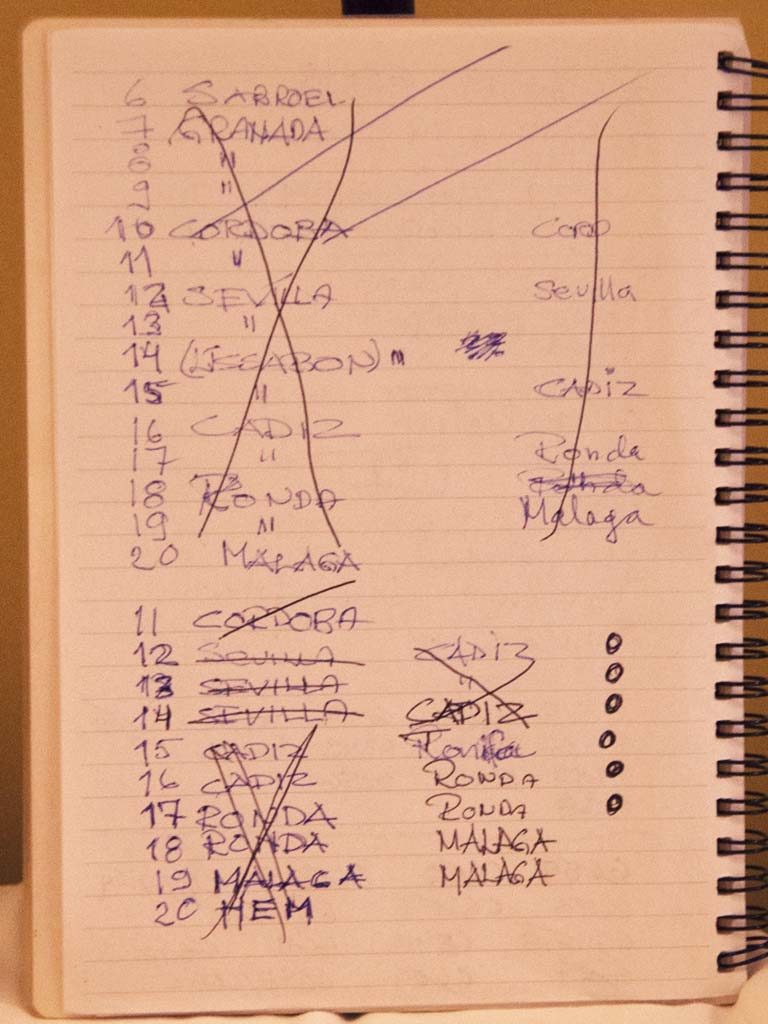 6 SABROEL
7 GRANADA
8 "
9 "
10 CORDOBA Cord
11 "
12 SEVILLA Sevilla
13 "
14 (LISSABON) "
15 " CADIZ
16 CADIZ
17 " Ronda
18 RONDA Ronda
19 " Malaga
20 MALAGA
11 CORDOBA
12 SEVILLA CADIZ
13 SEVILLA "
14 SEVILLA CADIZ
15 CADIZ Ronda
16 CADIZ RONDA
17 RONDA RONDA
18 RONDA MALAGA
19 MALAGA MALAGA
20 HEM